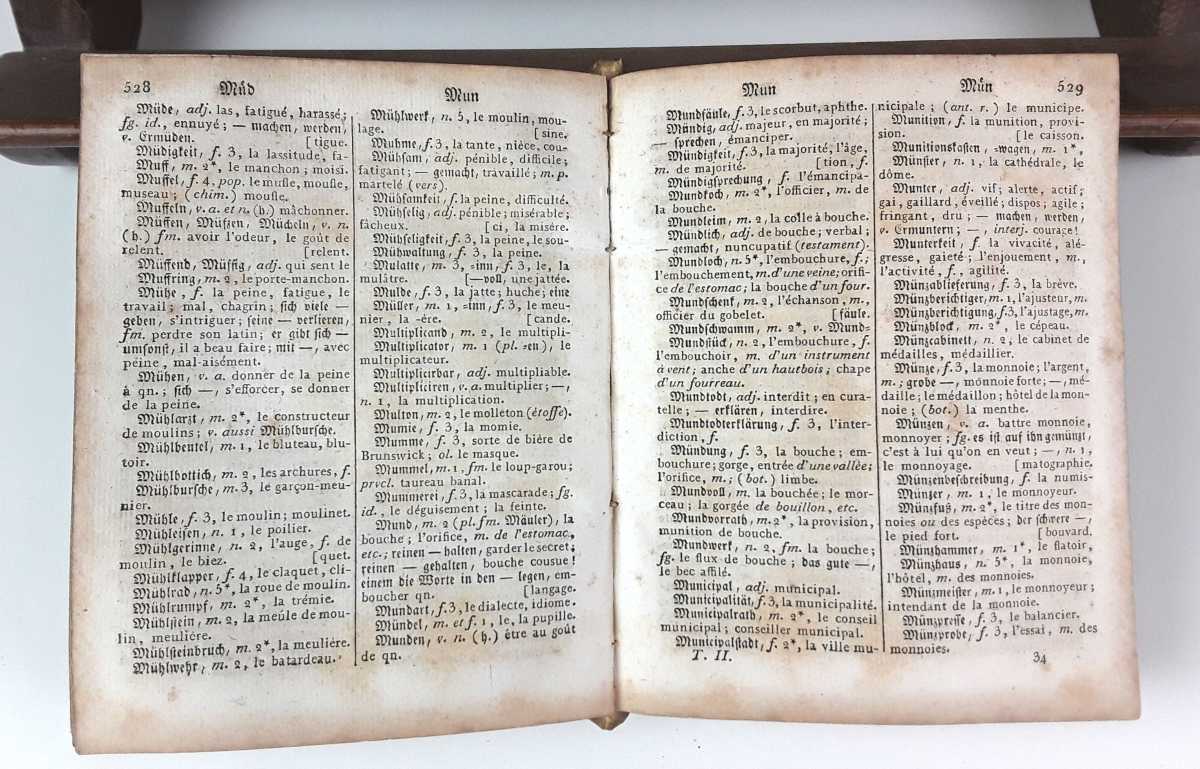 528
Müd
Müde, adj. las, fatigué, harassé;
fg. id., ennuyé; — machen, werden,
v. Ermüden. [tigue.
Müdigkeit, f. 3, la lassitude, fa-
Muff, m. 2*, le manchon; moisi.
Muffel, f. 4, pop. le mufle, moufle,
museau; (chim.) moufle.
Muffeln, v. a. et n. (h.) mâchonner.
Müffen, Müffzen, Mücheln, v. n.
(h.) fm. avoir l'odeur, le goût de
relent. [relent.
Müffend, Müffig, adj. qui sent le
Muffring, m. 2, le porte-manchon.
Mühe, f. la peine, fatigue, le
travail; mal, chagrin; sich viele —
geben, s'intriguer; seine — verlieren,
fm. perdre son latin; er gibt sich —
umsonst, il a beau faire; mit —, avec
peine, mal-aisément.
Mühen, v. a. donner de la peine
à qn.; sich —, s'efforcer, se donner
de la peine.
Mühlarzt, m. 2*, le constructeur
de moulins; v. aussi Mühlbursche.
Mühlbeutel, m. 1, le bluteau, blu-
toir.
Mühlbottich, m. 2, les archures, f.
Mühlbursche, m. 3, le garçon-meu-
nier.
Mühle, f. 3, le moulin; moulinet.
Mühleisen, n. 1, le poilier.
Mühlgerinne, n. 2, l'auge, f. de
moulin, le biez. [quet.
Mühlklapper, f. 4, le claquet, cli-
Mühlrad, n. 5*, la roue de moulin.
Mühlrumpf, m. 2*, la trémie.
Mühlstein, m. 2, la meûle de mou-
lin, meulière.
Mühlsteinbruch, m. 2*, la meulière.
Mühlwehr, m. 2, le batardeau.
Mun
Mühlwerk, n. 5, le moulin, mou-
lage. [sine.
Muhme, f. 3, la tante, nièce, cou-
Mühsam, adj. pénible, difficile;
fatigant; — gemacht, travaillé; m. p.
martelé (vers).
Mühsamkeit, f. la peine, difficulté.
Mühselig, adj. pénible; misérable;
fâcheux. [ci, la misère.
Mühseligkeit, f. 3, la peine, le sou-
Mühwaltung, f. 3, la peine.
Mulatte, m. 3, =inn, f. 3, le, la
mulâtre. [—voll, une jattée.
Mulde, f. 3, la jatte; huche; eine
Müller, m. 1, =inn, f. 3, le meu-
nier, la -ère. [cande.
Multiplicand, m. 2, le multipli-
Multiplicator, m. 1 (pl. =en), le
multiplicateur.
Multiplicirbar, adj. multipliable.
Multipliciren, v. a. multiplier; —,
n. 1, la multiplication.
Multon, m. 2, le molleton (étoffe).
Mumie, f. 3, la momie.
Mumme, f. 3, sorte de bière de
Brunswick; ol. le masque.
Mummel, m. 1, fm. le loup-garou;
prvcl. taureau banal.
Mummerei, f. 3, la mascarade; fg.
id., le déguisement; la feinte.
Mund, m. 2 (pl. fm. Mäuler), la
bouche; l'orifice, m. de l'estomac,
etc.; reinen — halten, garder le secret;
reinen — gehalten, bouche cousue!
einem die Worte in den — legen, em-
boucher qn. [langage.
Mundart, f. 3, le dialecte, idiome.
Mündel, m. et f. 1, le, la pupille.
Munden, v. n. (h.) être au goût
de qn.
Mun
Mundfäule, f. 3, le scorbut, aphthe.
Mündig, adj. majeur, en majorité;
— sprechen, émanciper.
Mündigkeit, f. 3, la majorité; l'âge,
m. de majorité. [tion, f.
Mündigsprechung, f. l'émancipa-
Mundkoch, m. 2*, l'officier, m. de
la bouche.
Mundleim, m. 2, la colle à bouche.
Mündlich, adj. de bouche; verbal;
— gemacht, nuncupatif (testament).
Mundloch, n. 5*, l'embouchure, f.;
l'embouchement, m. d'une veine; orifi-
ce de l'estomac; la bouche d'un four.
Mundschenk, m. 2, l'échanson, m.,
officier du gobelet. [fäule.
Mundschwamm, m. 2*, v. Mund=
Mundstück, n. 2, l'embouchure, f.
l'embouchoir, m. d'un instrument
à vent; anche d'un hautbois; chape
d'un fourreau.
Mundtodt, adj. interdit; en cura-
telle; — erklären, interdire.
Mundtodterklärung, f. 3, l'inter-
diction, f.
Mündung, f. 3, la bouche; em-
bouchure; gorge, entrée d'une vallée;
l'orifice, m.; (bot.) limbe.
Mundvoll, m. la bouchée; le mor-
ceau; la gorgée de bouillon, etc.
Mundvorrath, m. 2*, la provision,
munition de bouche.
Mundwerk, n. 2, fm. la bouche;
fg. le flux de bouche; das gute —,
le bec affilé.
Municipal, adj. municipal.
Municipalität, f. 3, la municipalité.
Municipalrath, m. 2*, le conseil
municipal; conseiller municipal.
Municipalstadt, f. 2*, la ville mu-
T. II.
Mün
529
nicipale; (ant. r.) le municipe.
Munition, f. la munition, provi-
sion. [le caisson.
Munitionskasten, =wagen, m. 1*,
Münster, n. 1, la cathédrale, le
dôme.
Munter, adj. vif; alerte, actif;
gai, gaillard, éveillé; dispos; agile;
fringant, dru; — machen, werden,
v. Ermuntern; —, interj. courage!
Munterkeit, f. la vivacité, alé-
gresse, gaieté; l'enjouement, m.,
l'activité, f., agilité.
Münzablieferung, f. 3, la brève.
Münzberichtiger, m. 1, l'ajusteur, m.
Münzberichtigung, f. 3, l'ajustage, m.
Münzblock, m. 2*, le cépeau.
Münzcabinett, n. 2, le cabinet de
médailles, médaillier.
Münze, f. 3, la monnoie; l'argent,
m.; grobe —, monnoie forte; —, mé-
daille; le médaillon; hôtel de la mon-
noie; (bot.) la menthe.
Münzen, v. a. battre monnoie,
monnoyer; fg. es ist auf ihn gemünzt,
c'est à lui qu'on en veut; —, n. 1,
le monnoyage. [matographie.
Münzenbeschreibung, f. la numis-
Münzer, m. 1, le monnoyeur.
Münzfuß, m. 2*, le titre des mon-
noies ou des espèces; der schwere —,
le pied fort. [bouvard.
Münzhammer, m. 1*, le flatoir,
Münzhaus, n. 5*, la monnoie,
l'hôtel, m. des monnoies.
Münzmeister, m. 1, le monnoyeur;
intendant de la monnoie.
Münzpresse, f. 3, le balancier.
Münzprobe, f. 3, l'essai, m. des
monnoies.
34